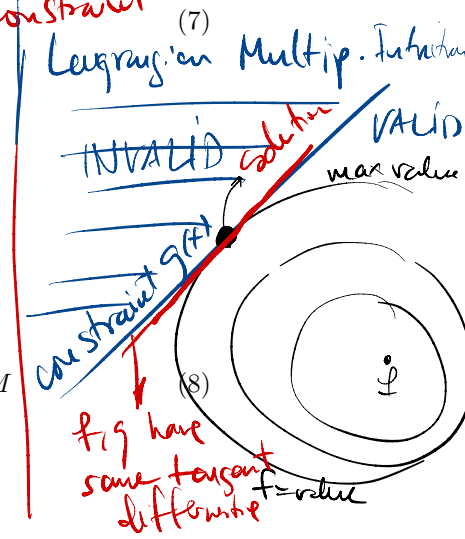 constraint
(7)
Lagrangian Multip. Intuition
INVALID
solution
VALID
max value
constraint g(t)
M
(8)
f
f,g have
same tangent
f=value